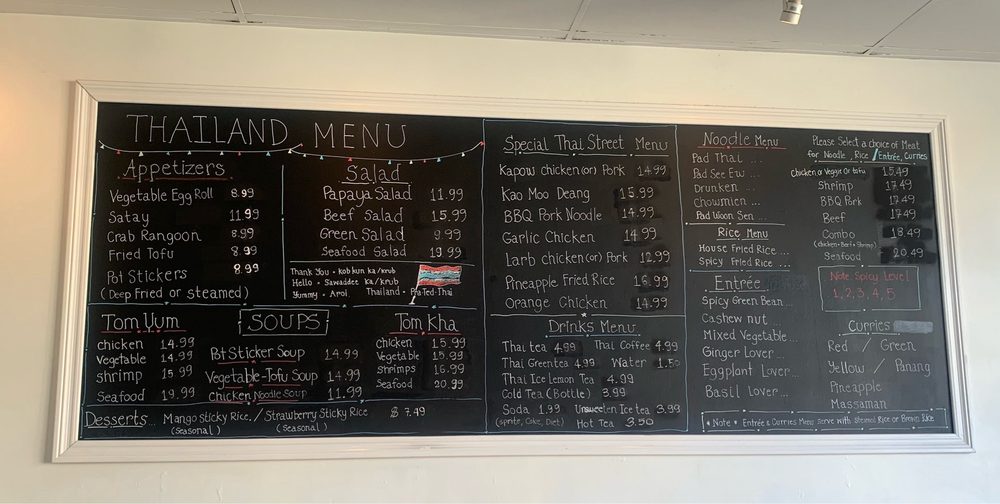 THAILAND MENU
Appetizers
Vegetable Egg Roll 8.99
Satay 11.99
Crab Rangoon 8.99
Fried Tofu 8.99
Pot Stickers 8.99
(Deep Fried or steamed)
Salad
Papaya Salad 11.99
Beef Salad 15.99
Green Salad 9.99
Seafood Salad 19.99
Thank You • Kob kun ka/krub
Hello • Sawaddee ka/krub
Yummy • Aroi, Thailand • Pra-Ted-Thai
Tom Yum
chicken 14.99
Vegetable 14.99
shrimp 15.99
Seafood 19.99
SOUPS
Pot Sticker Soup 14.99
Vegetable-Tofu Soup 14.99
Chicken Noodle Soup 11.99
Tom Kha
chicken 15.99
Vegetable 15.99
shrimps 16.99
Seafood 20.99
Desserts... Mango Sticky Rice. / Strawberry Sticky Rice $ 7.49
(Seasonal) (Seasonal)
Special Thai Street Menu
Kapow chicken (or) Pork 14.99
Kao Moo Deang 15.99
BBQ Pork Noodle 14.99
Garlic Chicken 14.99
Larb chicken (or) Pork 12.99
Pineapple Fried Rice 16.99
Orange Chicken 14.99
Drinks Menu
Thai tea 4.99 Thai Coffee 4.99
Thai Green tea 4.99 Water 1.50
Thai Ice Lemon Tea 4.99
Cold Tea (Bottle) 3.99
Soda 1.99 Unsweeten Ice tea 3.99
(sprite, Coke, Diet) Hot Tea 3.50
Noodle Menu
Pad Thai ...
Pad See Ew ...
Drunken ...
Chowmien ...
Pad Woon Sen ...
Rice Menu
House Fried Rice ...
Spicy Fried Rice ...
Entrée
Spicy Green Bean ...
Cashew nut ...
Mixed Vegetable ...
Ginger Lover ...
Eggplant Lover...
Basil Lover ...
Please Select a choice of Meat
for Noodle, Rice / Entrée, Curries
Chicken or Veggie or tofu 15.49
Shrimp 17.49
BBQ Pork 17.49
Beef 17.49
Combo 18.49
(chicken+Beef+Shrimp)
Seafood 20.49
Note Spicy Level
1, 2, 3, 4, 5
Curries
Red / Green
Yellow / Panang
Pineapple
Massaman
* Note * Entrée & Curries Menu serve with Steamed Rice or Brown Rice